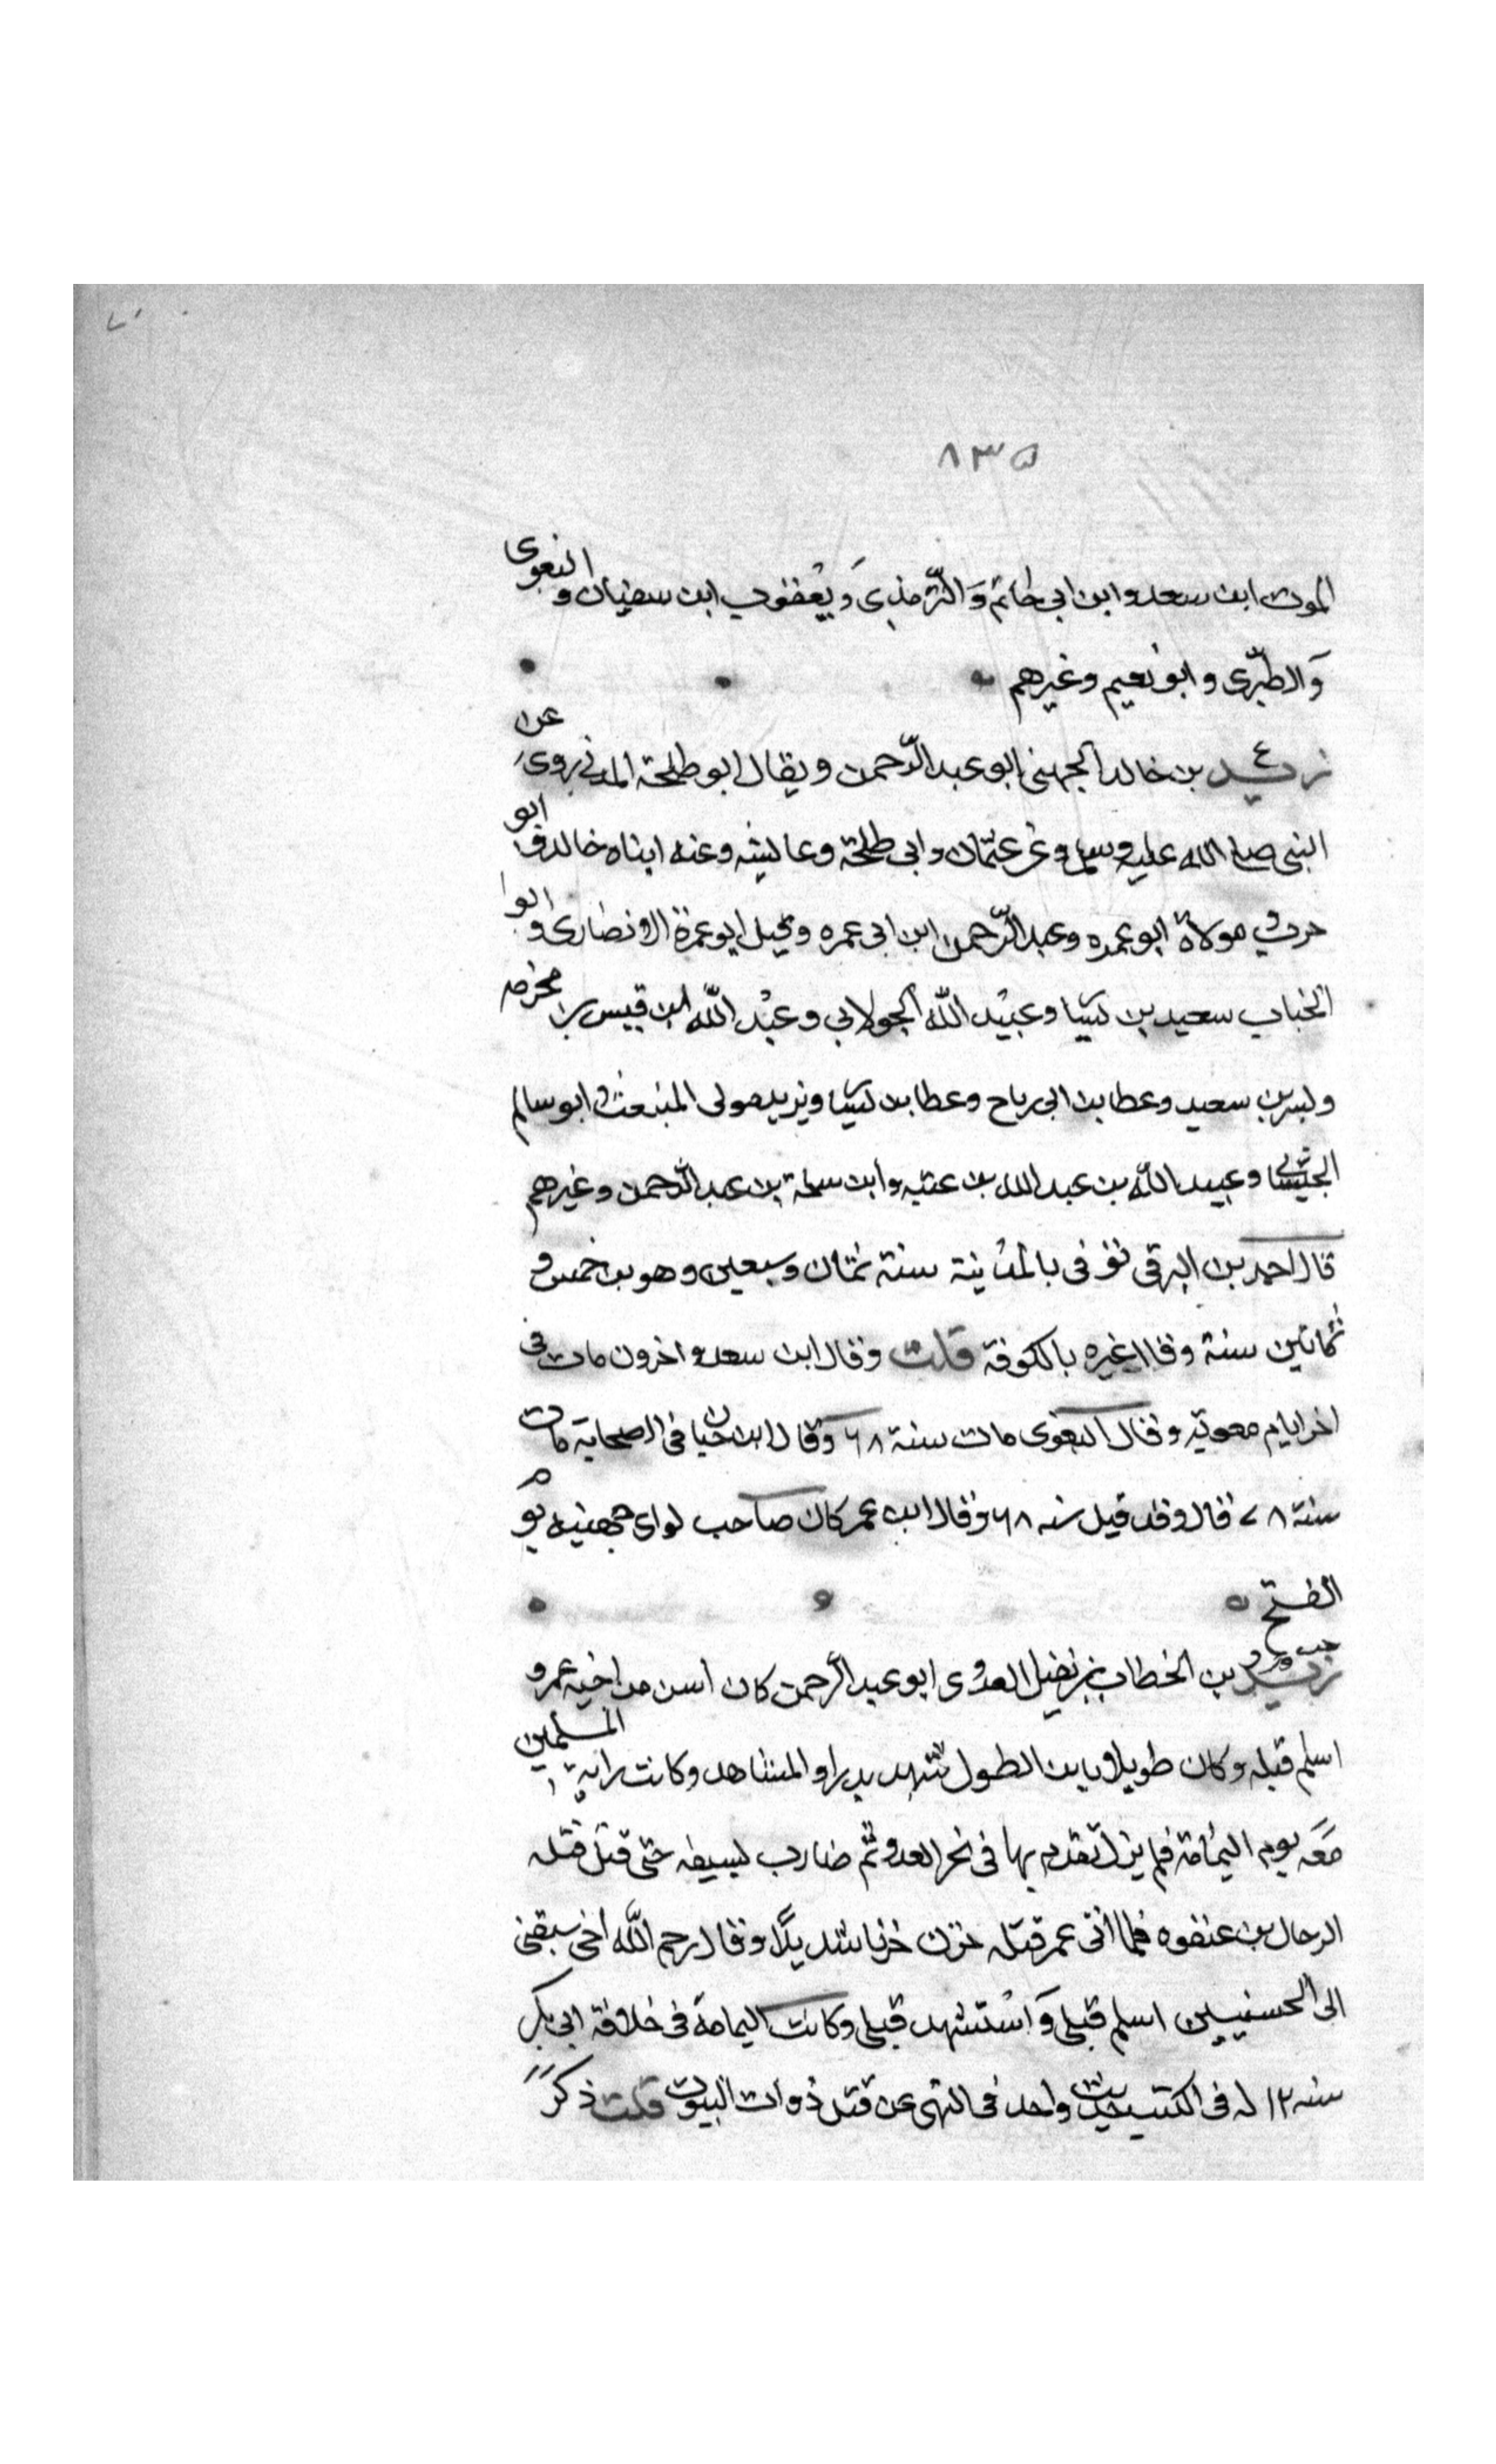 ٨٣٥
الموت ابن سعد و ابن ابي حاتم وَ الترمذى وَ يعقوب ابن سفيان و البغوى
وَ الطبرى و ابو نعيم وغيرهم
ع
زيد بن خالد الجهني ابو عبد الرّحمن و يقال ابو طلحة المدني روى عن
النبى صلى الله عليه وسلم وعن عثمان و ابى طلحة وعايشه وعنه ابناه خالد و ابو
حرب و مولاه ابو عمره وعبد الرّحمن ابن ابى عمره وقيل ابو عمرة الانصارى و ابوا
الحباب سعيد بن يسار و عبيد الله الخولانى و عبد الله ابن قيس بن مخرمه
وبسر بن سعيد وعطا بن ابى رباح وعطا بن يسار ويزيد مولى المنبعث و ابو سالم
الجيشانى و عبيد الله بن عبد الله بن عتبه و ابن سلمة بن عبد الرّحمن و غيرهم
قال احمد بن البرقى توفى بالمدينة سنة ثمان وسبعين وهو بن خمس و
ثمانين سنة و قال غيره بالكوفة قلت وقال ابن سعد و اخرون مات فى
اخر ايام معوية و قال البغوى مات سنة ٦٨ وقال ابن حبان فى الصحابة مات
سنة ٧٨ قال وقد قيل سنه ٦٨ وقال ابن عمر كان صاحب لواى جهنيه يوم
الفتح
زيد بن الخطاب بن نفيل العدوى ابو عبد الرّحمن كان اسن من اخيه عمر و
اسلم قبله وكان طويلا باين الطول شهد بدرا و المشاهد وكانت راية المسلمين
معَه يوم اليمامة فلم يزل تقدم بها فى نحر العدو ثم ضارب بسيفه حتى قتل قتله
الرحال بن عنفوه فلما اتى عمر قتله حزن حزنا شديدًا وقال رحم الله اخى سبقنى
الى الحسنيين اسلم قبلى وَ استشهد قبلى وكانت اليمامة فى خلافة ابى بكر
سنه ١٢ له فى الكتب حديث واحد فى النهى عن قتل ذوات البيوت قلت ذكر